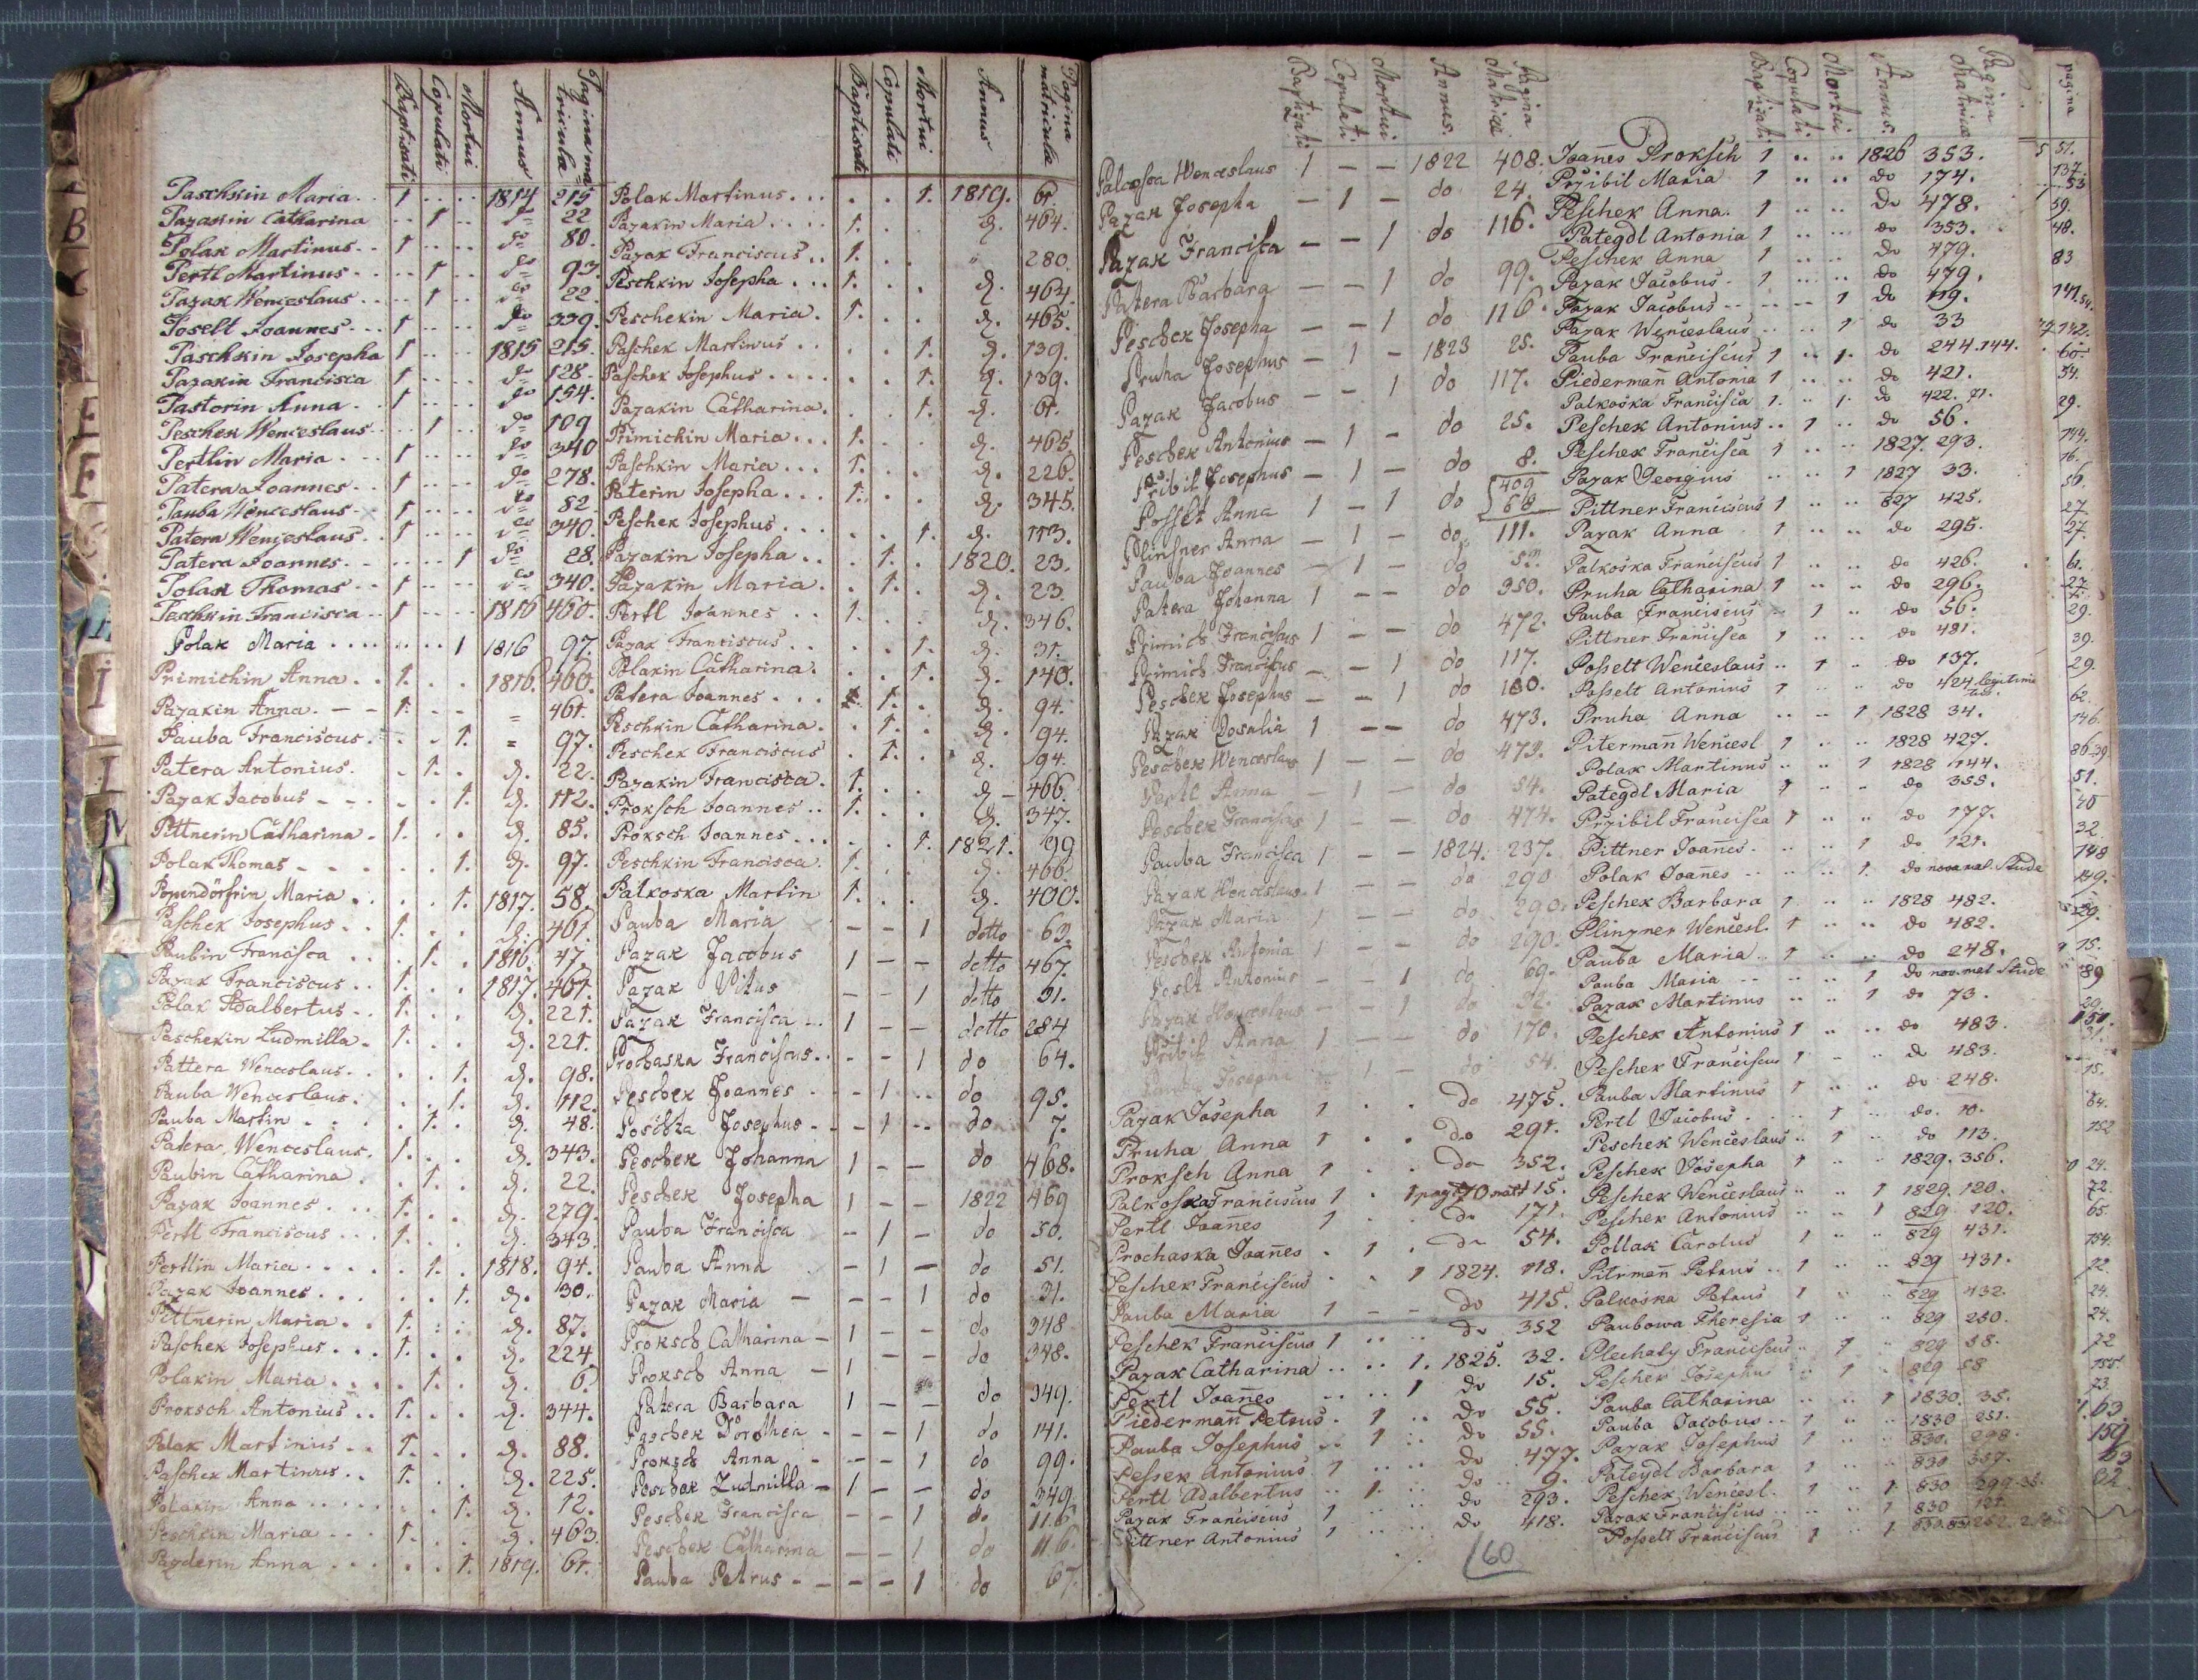 Baptisati Copulati Mortui Annus Pagina matriculæ
Paschkin Maria . . 1 .. .. 1814 215
Pazakin Catharina .. 1 .. do 22
Polak Martinus . . 1 .. .. do 80.
Pertl Martinus . . .. 1 .. do 93.
Pazak Wenceslaus .. 1 .. do 22.
Poselt Joannes . . . 1 .. .. do 339.
Paschkin Josepha 1 .. .. 1815 215.
Pazakin Francisca 1 .. .. do 128.
Pastorin Anna . 1 .. .. do 154.
Peschek Wenceslaus .. 1 .. do 109
Pertlin Maria . . 1 .. .. do 340
Patera Joannes . . 1 .. .. do 278.
Pauba Wenceslaus 1 .. .. do 82
Patera Wenceslaus . 1 .. .. do 340.
Patera Joannes . . .. .. 1 do 28.
Polak Thomas . . 1 .. .. do 340.
Peschkin Francisca . . 1 .. .. 1816 460.
Polak Maria . . . . .. .. 1 1816 97.
Primichin Anna . . 1. . . 1816. 460.
Pazakin Anna. – – 1. . . = 461.
Pauba Franciscus . . . 1. = 97.
Patera Antonius. . 1. . d. 22.
Pazak Jacobus – – . . 1. d. 112.
Pittnerin Catharina . 1. . . d. 85.
Polak Thomas – – . . 1. d. 97.
Popendörfrin Maria . . . 1. 1817. 58.
Paschek Josephus . . 1. . . d. 461.
Paubin Francisca . . . 1. . 1816. 47.
Pazak Franciscus . . 1. . . 1817. 461.
Polak Adalbertus . . 1. . . d. 221.
Paschekin Ludmilla . 1. . . d. 221.
Pattera Wenceslaus . . . . 1. d. 98.
Pauba Wenceslaus . . . 1. d. 112.
Pauba Martin . . . . 1. . d. 48.
Patera Wenceslaus . 1. . . d. 343.
Paubin Catharina . . 1. . d. 22.
Pazak Joannes . . . 1. . . d. 279.
Pertl Franciscus . . . 1. . . d. 343.
Pertlin Maria . . . . 1. . 1818. 94.
Pazak Joannes . . . . . 1. d. 30.
Pittnerin Maria . . 1. . . d. 87.
Paschek Josephus . . . 1. . . d. 224.
Polakin Maria . . . . 1. . d. 6.
Proksch Antonius . . 1. . . d. 344.
Polak Martinus . . 1. . . d. 88.
Paschek Martinus . . 1. . . d. 225.
Polakin Anna . . . . . 1. d. 12.
Peschkin Maria . . . 1. . . d. 463.
Pazderin Anna . . . . . 1. 1819. 61.
Baptisati Copulati Mortui Annus Pagina matriculæ
Polak Martinus . . . . . 1. 1819. 61.
Pazakin Maria . . . . 1. . . d. 464.
Pazak Franciscus . . 1. . . " 280.
Peschkin Josepha . . . 1. . . d. 464.
Peschekin Maria . 1. . . d. 465.
Paschek Martinus . . . . 1. d. 139.
Paschek Josephus . . . . . . 1. d. 139.
Pazakin Catharina . . . 1. d. 61.
Primichin Maria . . . 1. . . d. 465.
Paschkin Maria . . . 1. . . d. 226.
Paterin Josepha . . . 1. . . d. 345.
Peschek Josephus . . . . . 1. d. 113.
Pazakin Josepha . . . 1. . 1820. 23.
Pazakin Maria . . 1. . d. 23.
Pertl Joannes . . 1. . . d. 346.
Pazak Franciscus . . . . 1. d. 31.
Polakin Catharina . . . 1. d. 140.
Patera Joannes . . . 1. . d. 94.
Peschkin Catharina . . 1. . d. 94.
Peschek Franciscus . 1. . d. 94.
Pazakin Francisca . 1. . . d – 466.
Proksch Joannes . . 1. . . d. 347.
Proksch Joannes . . . . . 1. 1821. 99
Peschkin Francisca . 1. . . d. 466.
Palkoska Martin 1. . . d. 400.
Pauba Maria – – 1 detto 63.
Pazak Jacobus 1 – – detto 467.
Pazak Vitus – – 1 detto 31.
Pazak Francisca . . 1 – – detto 284
Prochaska Franciscus . – – 1 do 64.
Peschek Joannes – 1 – do 95.
Poschta Josephus – – 1 – do 7.
Peschek Johanna 1 – – do 468.
Peschek Josepha 1 – – 1822 469
Pauba Francisca – 1 – do 50.
Pauba Anna – 1 – do 51.
Pazak Maria – – – 1 do 31.
Proksch Catharina – 1 – – do 348
Proksch Anna – 1 – – do 348.
Patera Barbara 1 – – do 349.
Paschek Dorothea – – – 1 do 141.
Proksch Anna – – 1 do 99.
Peschek Ludmilla – 1 – – do 349.
Peschek Francisca – – 1 do 116
Peschek Catharina – – 1 do 116.
Pauba Petrus – – – – 1 do 67.
Baptizati Copulati Mortui Annus. Pagina Matricæ
Palcosca Wenceslaus 1 – – 1822 408.
Pazak Josepha – 1 – do 24.
Pazak Francisca – – 1 do 116.
Patera Barbara – – 1 do 99.
Peschek Josepha – – 1 do 116.
Pruha Josephus – 1 – 1823 25.
Pazak Jacobus – – 1 do 117.
Peschek Antonius – 1 – do 25.
Przibil Josephus – 1 – do 8.
Posselt Anna 1 – 1 do 409 68
Plinsner Anna – 1 – do 111.
Pauba Joannes – 1 – do 52.
Patera Johanna 1 – – do 350.
Primich Franciscus 1 – – do 472.
Primich Franciscus – – 1 do 117.
Peschek Josephus – – 1 do 100.
Pazak Rosalia 1 – – do 473.
Peschek Wenceslaus 1 – – do 473.
Pertl Anna – 1 – do 54.
Peschek Franciscus 1 – – do 474.
Pauba Francisca 1 – – 1824. 237.
Pazak Wenceslaus 1 – – do 290
Pazak Maria 1 – – do 290.
Peschek Antonia 1 – – do 290.
Poselt Antonius – – 1 do 69.
Pazak Wenceslaus – – 1 do 32.
Pribil Anna 1 – – do 170.
Pauba Josepha – 1 – do 54.
Pazak Josepha 1 . . do 475.
Pruha Anna 1 . . do 291.
Proksch Anna 1 . . do 352.
Palkoska Franciscus 1 . 1 pag 70 matr 15.
Pertl Joanes 1 . . do 171.
Prochaska Joanes . 1 . do 54.
Peschek Franciscus . . 1 1824. 118.
Pauba Maria 1 – – do 415.
Peschek Franciscus 1 .. .. do 352
Pazak Catharina .. .. 1. 1825. 32.
Pertl Joanes .. .. 1 do 15.
Piedermañ Petrus . 1 .. do 55.
Pauba Josephus .. 1 .. do 55.
Pessek Antonius 1 .. .. do 477.
Pertl Adalbertus .. 1 .. do 9.
Pazak Franciscus 1 .. .. do 293.
Pittner Antonius 1 .. .. do 418.
60
Baptizati Copulati Mortui Annus. Pagina Matricæ
Joanes Proksch 1 .. .. 1826 353.
Przibil Maria 1 .. .. do 174.
Peschek Anna. 1 .. .. do 478.
Pategdl Antonia 1 .. .. do 353.
Peschek Anna 1 .. .. do 479.
Pazak Jacobus . 1 .. .. do 479.
Pazak Jacobus .. .. 1 do 119.
Pazak Wenceslaus .. .. 1 do 33
Pauba Franciscus 1 .. 1. do 244.144.
Piedermañ Antonia 1 .. .. do 421.
Palkoska Francisca 1. .. 1. do 422. 71.
Peschek Antonius .. 1 .. do 56.
Peschek Francisca 1 .. .. 1827. 293.
Pazak Georgius .. .. 1 1827 33.
Pittner Franciscus 1 .. .. 827 425.
Pazak Anna 1 .. .. do 295.
Palkoska Franciscus 1 .. .. do 426.
Pruha Catharina 1 .. .. do 296.
Pauba Franciscus .. 1 .. do 56.
Pittner Francisca 1 .. .. do 481.
Posselt Wenceslaus .. 1 .. do 137.
Posselt Antonius 1 .. .. do 424 legitima
Pruha Anna .. .. 1 1828 34.
Pitermañ Wencesl 1 .. .. 1828 427.
Polak Martinus .. .. 1 1828 144.
Pategdl Maria 1 .. .. do 355.
Przibil Francisca 1 .. .. do 177.
Pittner Joanes. .. .. 1 do 121.
Polak Joanes .. .. 1. do nova mat. Stude
Peschek Barbara 1 .. .. 1828 482.
Plinzner Wencesl. 1 .. .. do 482.
Pauba Maria .. 1 .. .. do 248.
Pauba Maria .. .. 1 do nov. mat Stude
Pazak Martinus .. .. 1 do 73.
Peschek Antonius 1 .. .. do 483.
Peschek Franciscus 1 .. .. do 483.
Pauba Martinus 1 .. .. do 248.
Pertl Jacobus . .. 1 .. do. 10.
Peschek Wenceslaus .. 1 .. do 113.
Peschek Josepha 1 .. .. 1829. 356.
Peschek Wenceslaus .. .. 1 1829. 120.
Peschek Antonius .. .. 1 829 120.
Pollak Carolus 1 .. .. 829 431.
Pitrmañ Petrus .. 1 .. .. 829 431.
Palkoska Petrus 1 .. .. 829 432.
Paubowa Theresia 1 .. .. 829 250.
Plechaty Franciscus .. 1 .. 829 58.
Peschek Josephus .. 1 .. 829 58
Pauba Catharina .. .. 1 1830. 35.
Pauba Jacobus .. 1 .. .. 1830 251.
Pazak Josephus 1 .. .. 830. 298.
Pategdl Barbara 1 .. .. 830 357.
Peschek Wencesl. 1 .. 1. 830 299.35.
Pazak Franciscus .. .. 1 830 121.
Posselt Franciscus 1 .. 1
pagina
51.
137.
53
59.
48.
83
141.54.
142.
60.
54.
29.
144.
16.
56.
27.
27.
61.
27.
29.
39.
29.
62.
146.
86.39
51.
40
32.
148
149.
29.
15.
89
29.
151.
31.
15.
64.
152
24.
72.
65.
154.
72.
24.
24.
72
155
73
63.
159
63
82.
B
F
F
I
I
N
P